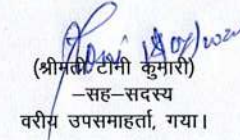 (श्रीमती टोनी कुमारी)
–सह–सदस्य
वरीय उपसमाहर्ता, गया।